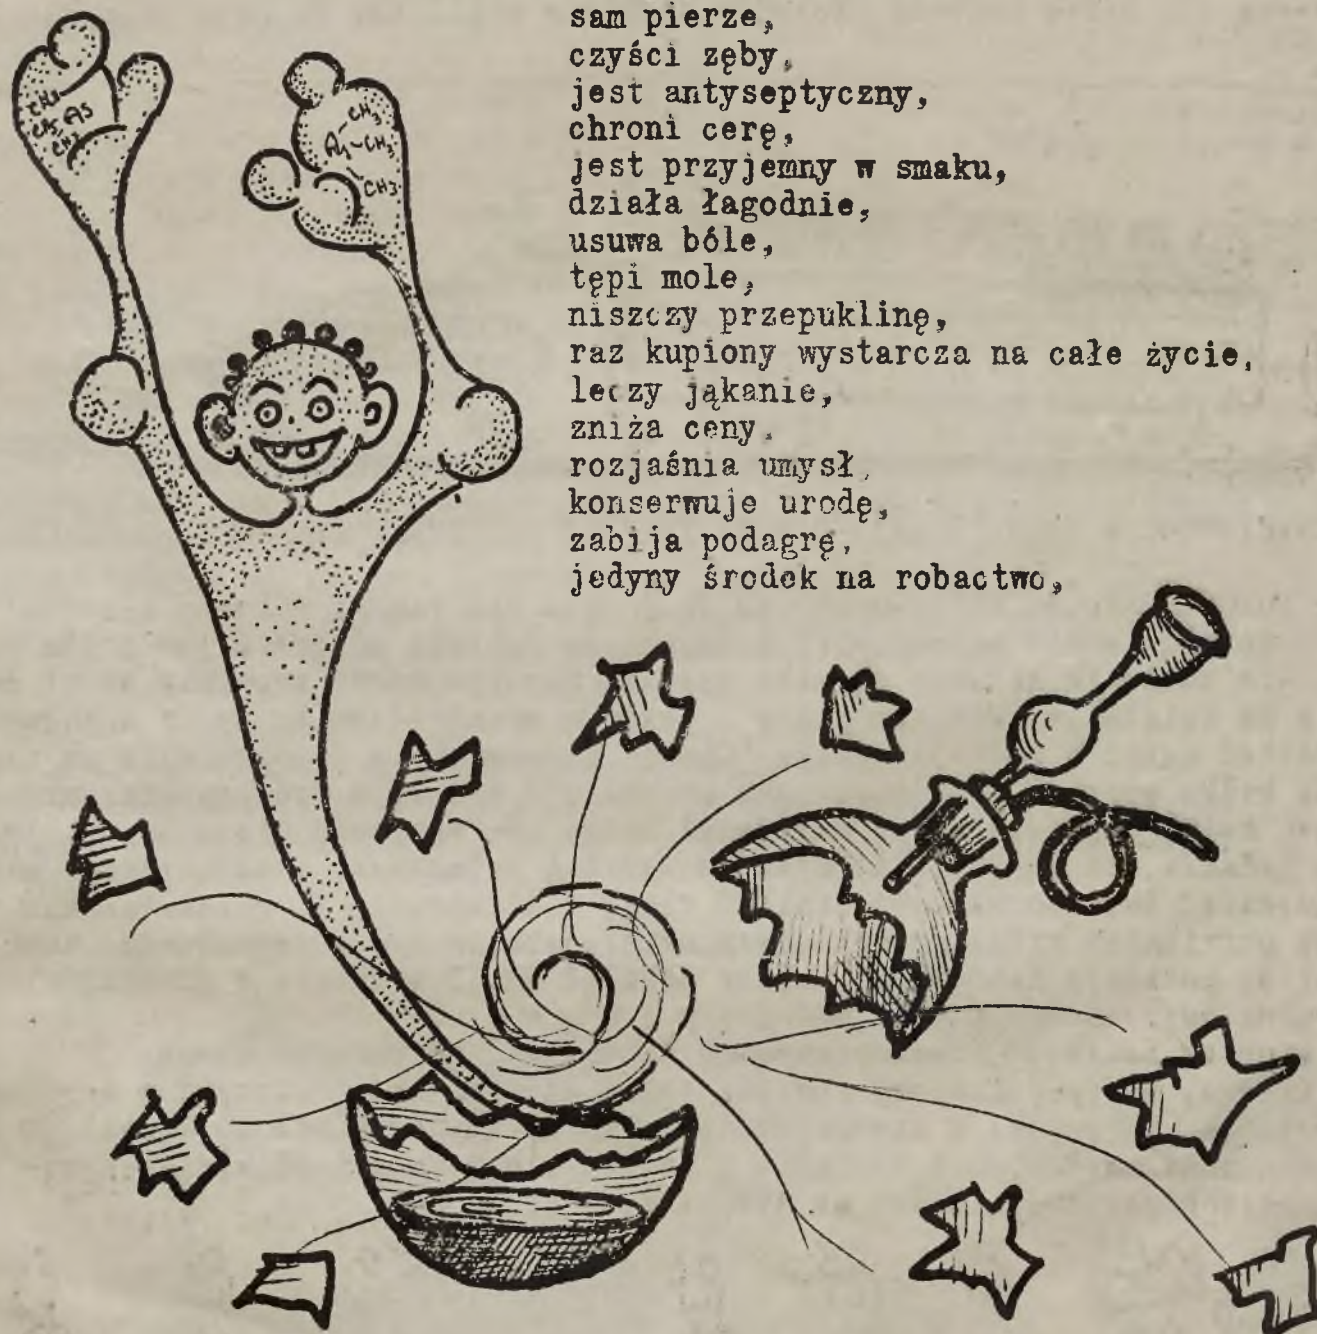 sam pierze,
czyści zęby,
jest antyseptyczny,
chroni cerę,
jest przyjemny w smaku,
działa łagodnie,
usuwa bóle,
tępi mole,
niszczy przepuklinę,
raz kupiony wystarcza na całe życie,
leczy jąkanie,
zniża ceny,
rozjaśnia umysł,
konserwuje urodę,
zabija podagrę,
jedyny środek na robactwo,
CH3
CH3 As
CH3
CH3
As-CH3
CH3